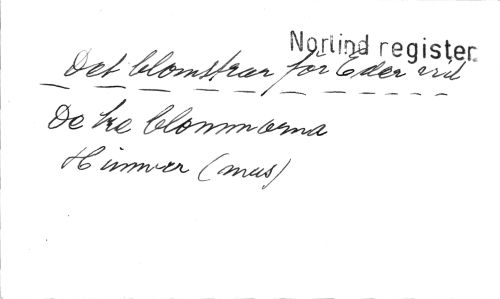 Norlind register
Det blomstrar för Eder vid
De tre blommorna
Hummer (mus)